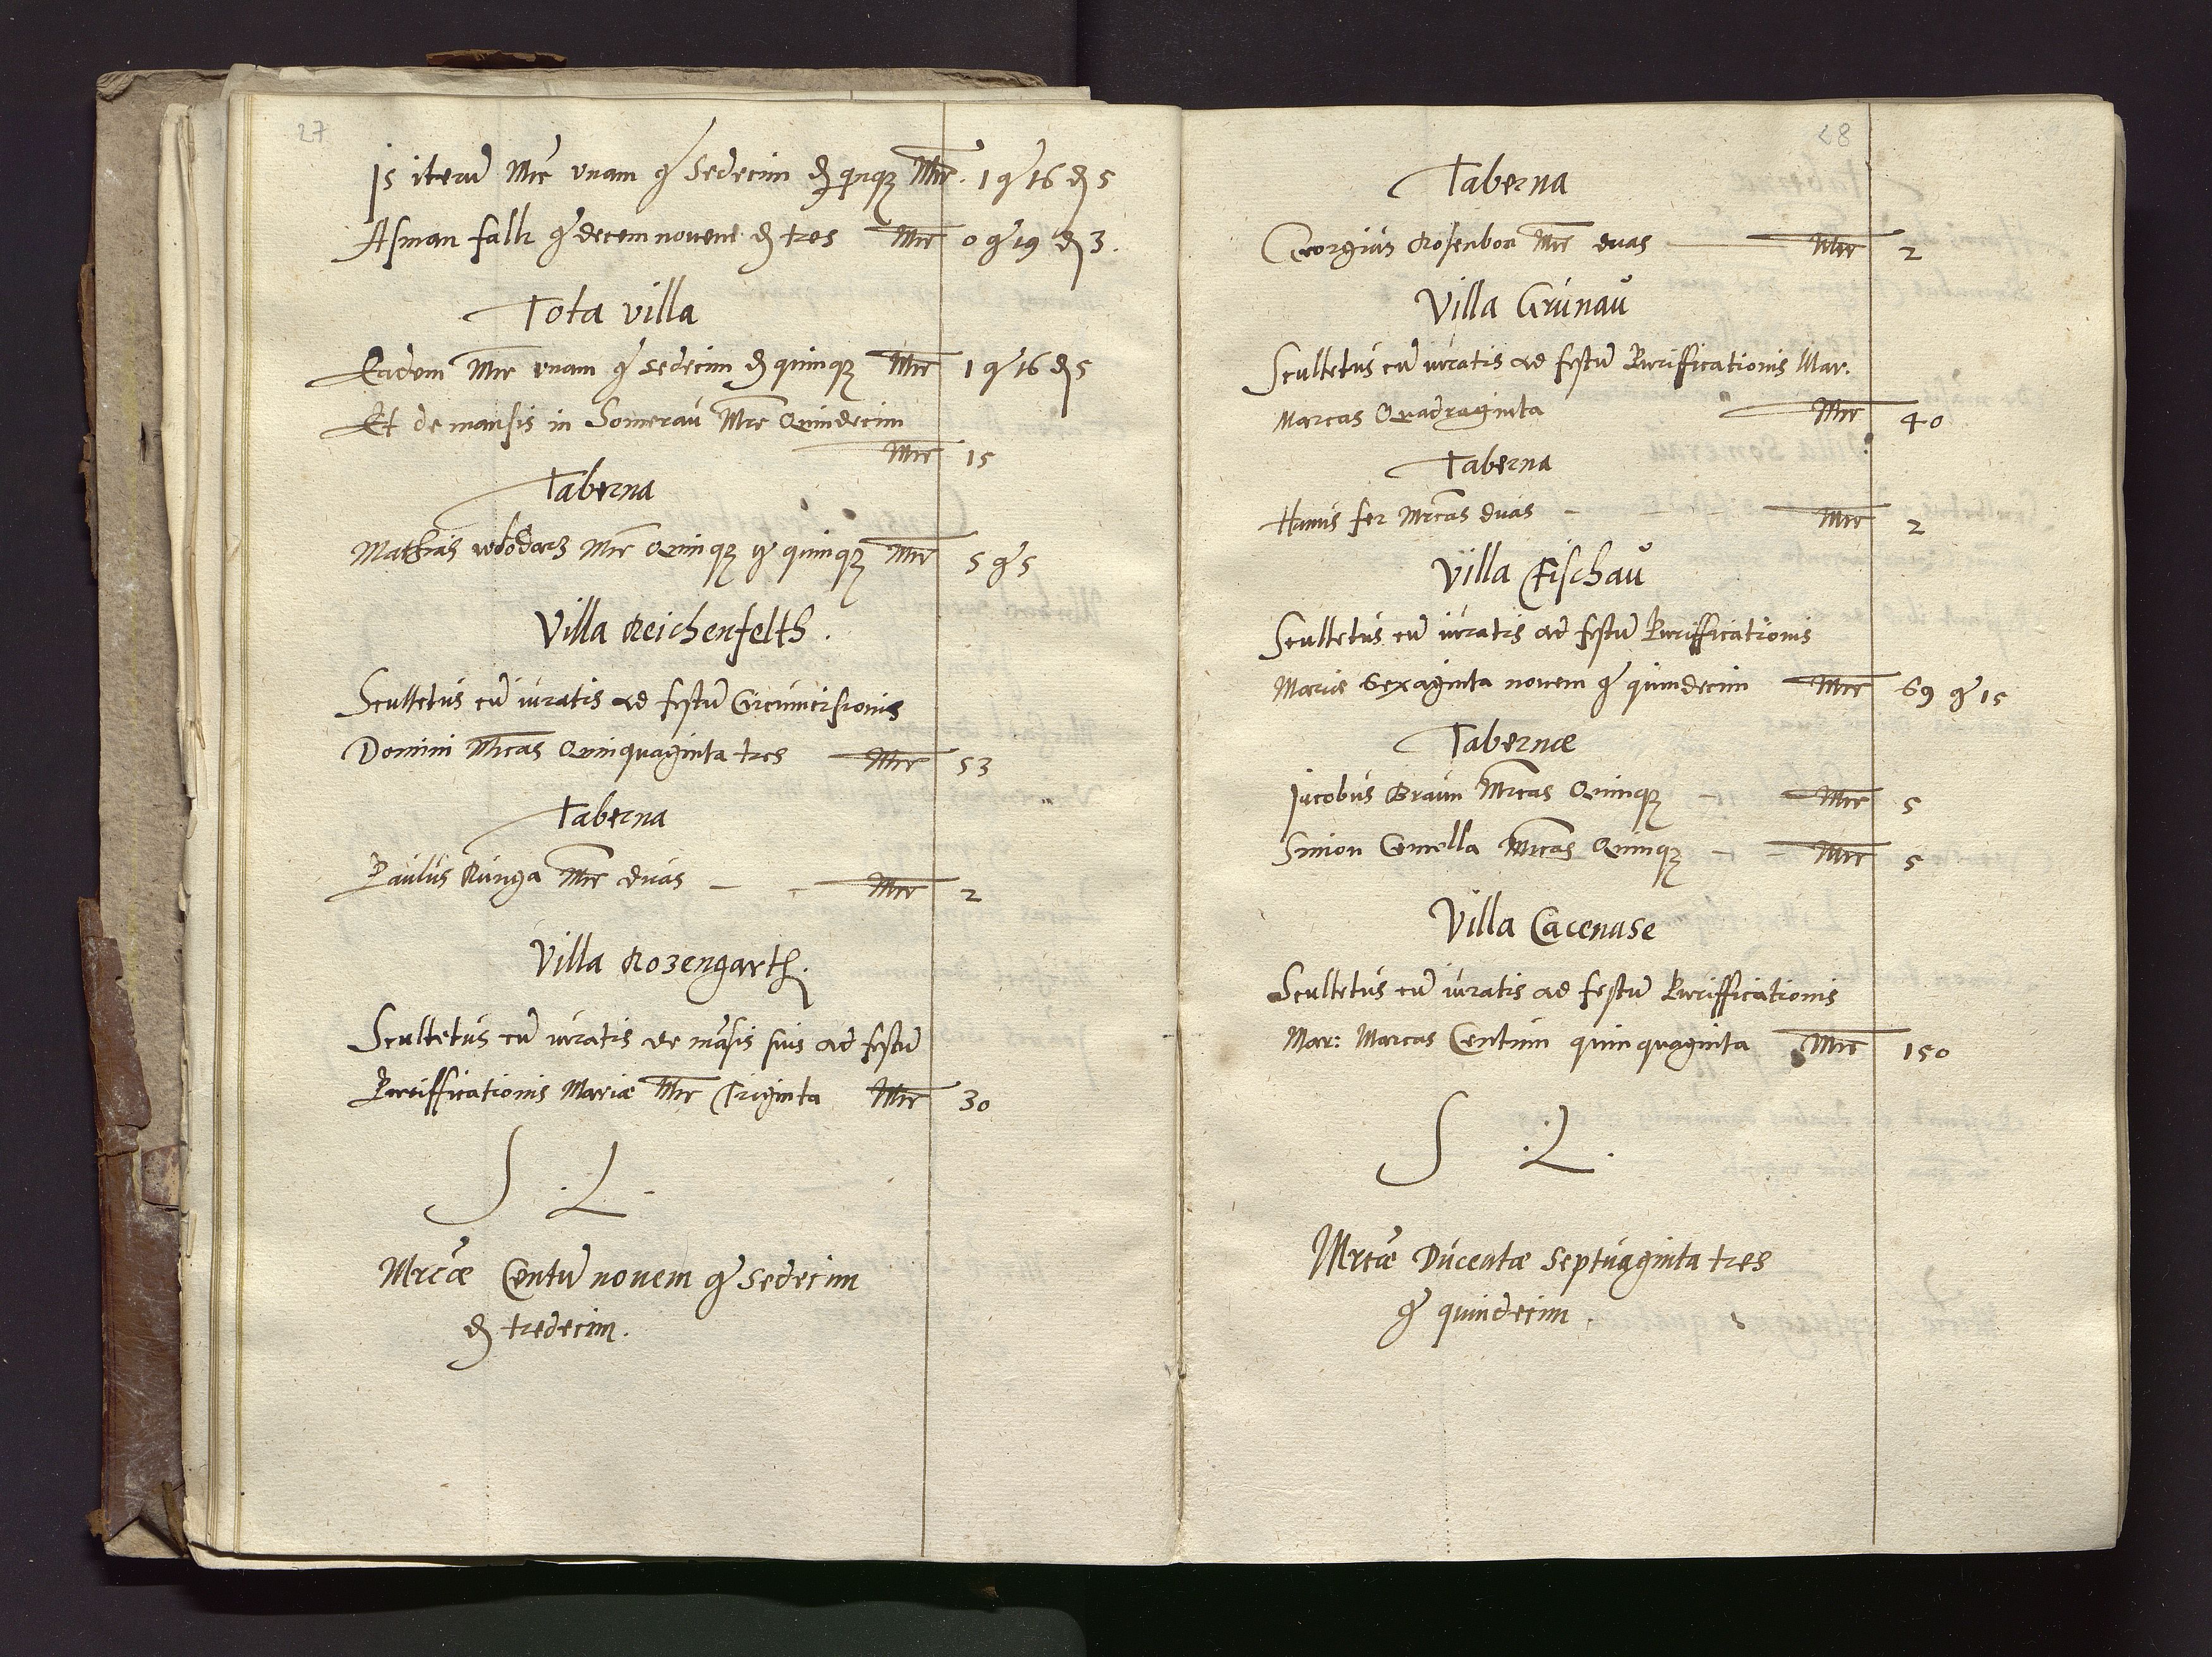 27
Is iterū Mrc vnam gͬ sedecim ₰ qinqꝫ Mrc. 1 gͬ 16 ₰ 5
Asman falk gͬ decem novem ₰ tres Mrc 0 gͬ 19 ₰ 3.
Tota villa
Eadem Mrc vnam gͬ sedecim ₰ quinqꝫ Mrc 1 gͬ 16 ₰ 5
Et de mansis in Somerau Mrc Quindecim
Mrc 15
Taberna
Mathias wlodarz Mrc Quinqꝫ gͬ quinqꝫ Mrc 5 gͬ 5
Villa Reichenfelth.
Scultetus cū iuratis ad festū Circumcisionis
Domini Mrcas Quinquaginta tres Mrc 53
Taberna
Paulus Runga Mrc duas – Mrc 2
Villa Rozengarth.
Scultetus cū iuratis de māsis suis ad festū
Purifficationis Mariæ Mrc Triginta Mrc 30
S .L.
Mrcæ Centū novem gͬ sedecim
₰ tredecim.
28
Taberna
Georgius Rosenbon Mrc duas – Mrc 2
Villa Grunau
Scultetus cū iuratis ad festū Purifficationis Mar.
Marcas Quadraginta Mrc 40
Taberna
Hanus fer Mrcas duas – Mrc 2
Villa Fischau
Scultetus cū iuratis ad festū Purifficationis
Mariæ Sexaginta novem gͬ quindecim Mrc 69 gͬ 15
Tabernæ
Jacobus Braun Mrcas Quinqꝫ – Mrc 5
Simon Mrcas Quinqꝫ – Mrc 5
Villa Cacenase
Scultetus cū iuratis ad festū Purifficationis
Mar: Marcas Centum quinquaginta Mrc 150
S .L.
Mrcæ Ducentæ septuaginta tres
gͬ quindecim.